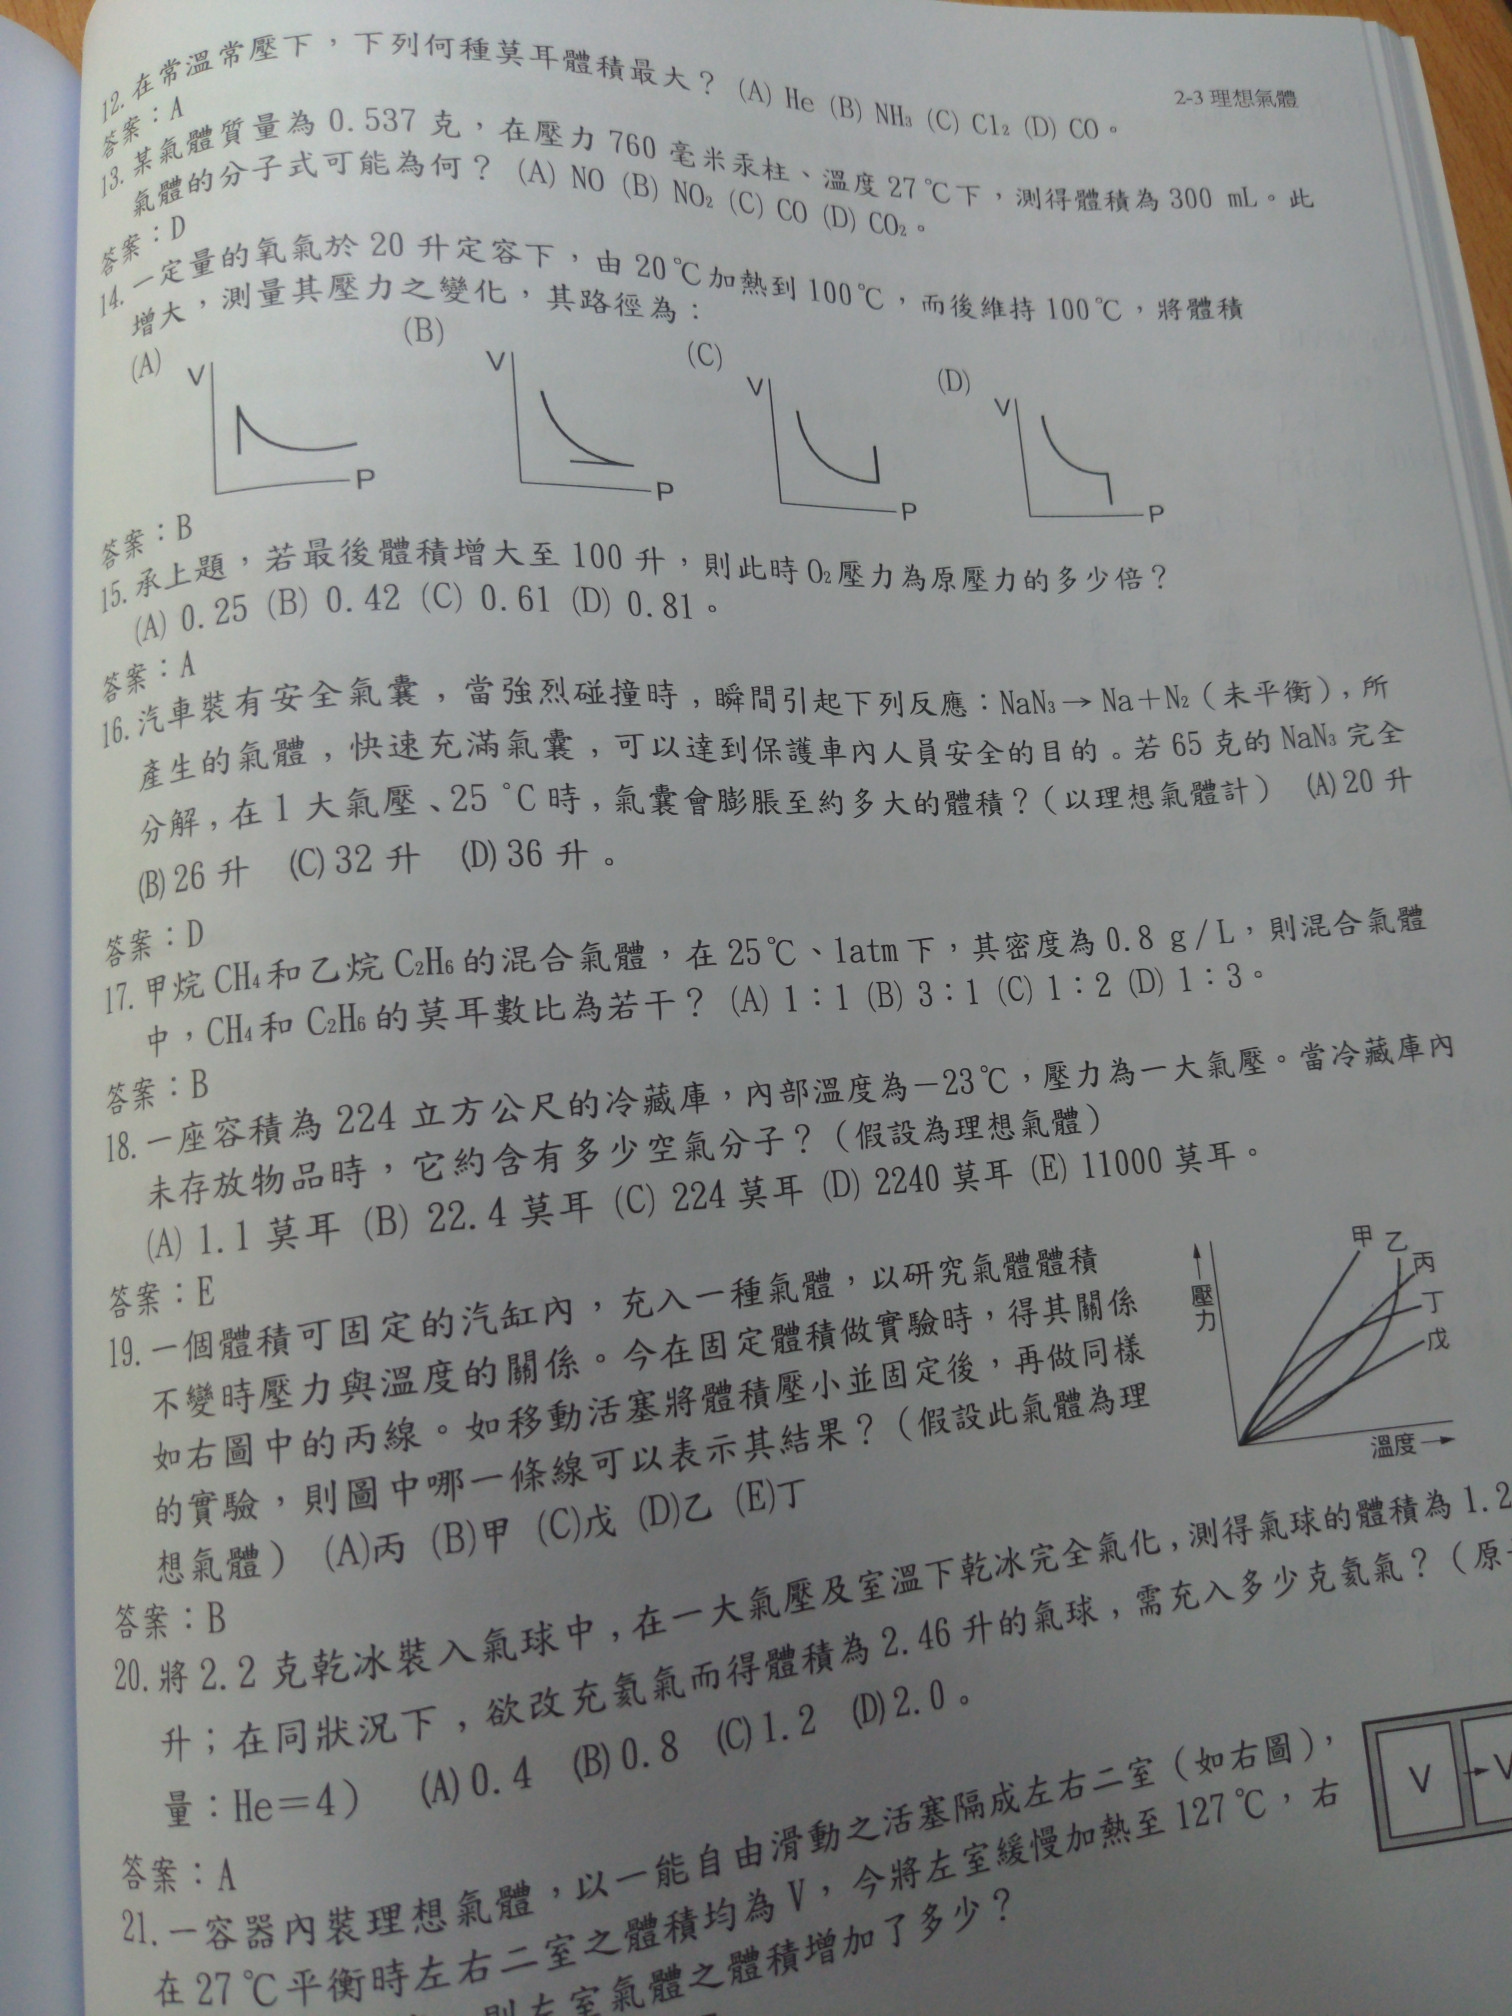 2-3 理想氣體
12. 在常溫常壓下，下列何種莫耳體積最大？ (A) He (B) NH₃ (C) Cl₂ (D) CO。
答案：A
13. 某氣體質量為 0.537 克，在壓力 760 毫米汞柱、溫度 27℃下，測得體積為 300 mL。此
氣體的分子式可能為何？ (A) NO (B) NO₂ (C) CO (D) CO₂。
答案：D
14. 一定量的氧氣於 20 升定容下，由 20℃加熱到 100℃，而後維持 100℃，將體積
增大，測量其壓力之變化，其路徑為：
(A) (B) (C) (D)
V V V V
P P P P
答案：B
15. 承上題，若最後體積增大至 100 升，則此時 O₂壓力為原壓力的多少倍？
(A) 0.25 (B) 0.42 (C) 0.61 (D) 0.81。
答案：A
16. 汽車裝有安全氣囊，當強烈碰撞時，瞬間引起下列反應：NaN₃→Na＋N₂（未平衡），所
產生的氣體，快速充滿氣囊，可以達到保護車內人員安全的目的。若 65 克的 NaN₃完全
分解，在 1 大氣壓、25 °C 時，氣囊會膨脹至約多大的體積？（以理想氣體計） (A) 20 升
(B) 26 升 (C) 32 升 (D) 36 升。
答案：D
17. 甲烷 CH₄和乙烷 C₂H₆的混合氣體，在 25℃、1atm 下，其密度為 0.8 g/L，則混合氣體
中，CH₄和 C₂H₆的莫耳數比為若干？ (A) 1：1 (B) 3：1 (C) 1：2 (D) 1：3。
答案：B
18. 一座容積為 224 立方公尺的冷藏庫，內部溫度為－23℃，壓力為一大氣壓。當冷藏庫內
未存放物品時，它約含有多少空氣分子？（假設為理想氣體）
(A) 1.1 莫耳 (B) 22.4 莫耳 (C) 224 莫耳 (D) 2240 莫耳 (E) 11000 莫耳。
答案：E
19. 一個體積可固定的汽缸內，充入一種氣體，以研究氣體體積
不變時壓力與溫度的關係。今在固定體積做實驗時，得其關係
如右圖中的丙線。如移動活塞將體積壓小並固定後，再做同樣
的實驗，則圖中哪一條線可以表示其結果？（假設此氣體為理
想氣體） (A)丙 (B)甲 (C)戊 (D)乙 (E)丁
甲 乙 丙
丁
戊
壓力
溫度
答案：B
20. 將 2.2 克乾冰裝入氣球中，在一大氣壓及室溫下乾冰完全氣化，測得氣球的體積為 1.2
升；在同狀況下，欲改充氦氣而得體積為 2.46 升的氣球，需充入多少克氦氣？（原
量：He＝4） (A) 0.4 (B) 0.8 (C) 1.2 (D) 2.0。
答案：A
21. 一容器內裝理想氣體，以一能自由滑動之活塞隔成左右二室（如右圖），
在 27℃平衡時左右二室之體積均為 V，今將左室緩慢加熱至 127℃，右
則左室氣體之體積增加了多少？
V V